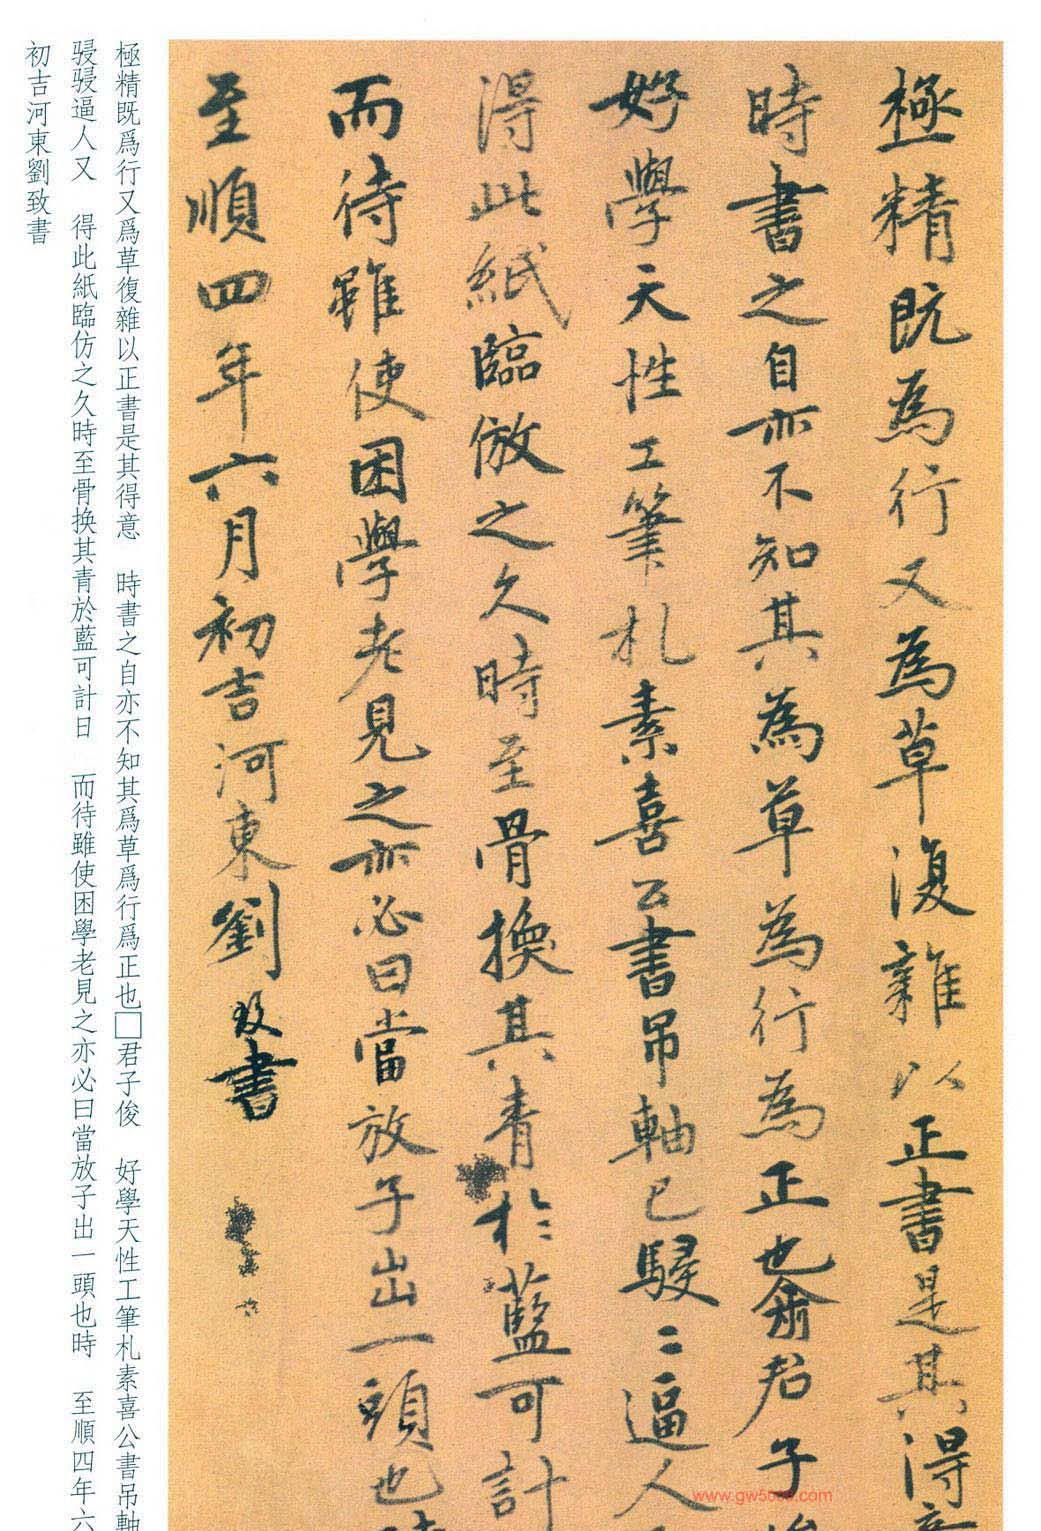 極精既為行又為草復雜以正書是其得
時書之自亦不知其為草為行為正也俞君子
好學天性工筆札素喜公書吊軸已駸〻逼人
得此紙臨倣之久時至骨換其青於藍可計
而待雖使困學老見之亦必曰當放子出一頭也
至順四年六月初吉河東劉致書
極精既爲行又爲草復雜以正書是其得意　時書之自亦不知其爲草爲行爲正也□君子俊　好學天性工筆札素喜公書吊軸
駸駸逼人又　得此紙臨仿之久時至骨換其青於藍可計日　而待雖使困學老見之亦必曰當放子出一頭也時　至順四年六
初吉河東劉致書